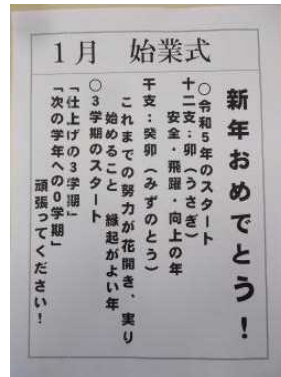 1月 始業式
新年おめでとう！
○令和5年のスタート
十二支：卯（うさぎ）
安全・飛躍・向上の年
干支：癸卯（みずのとう）
これまでの努力が花開き、実り
始めること 縁起がよい年
○3学期のスタート
「仕上げの3学期」
「次の学年への0学期」
頑張ってください！